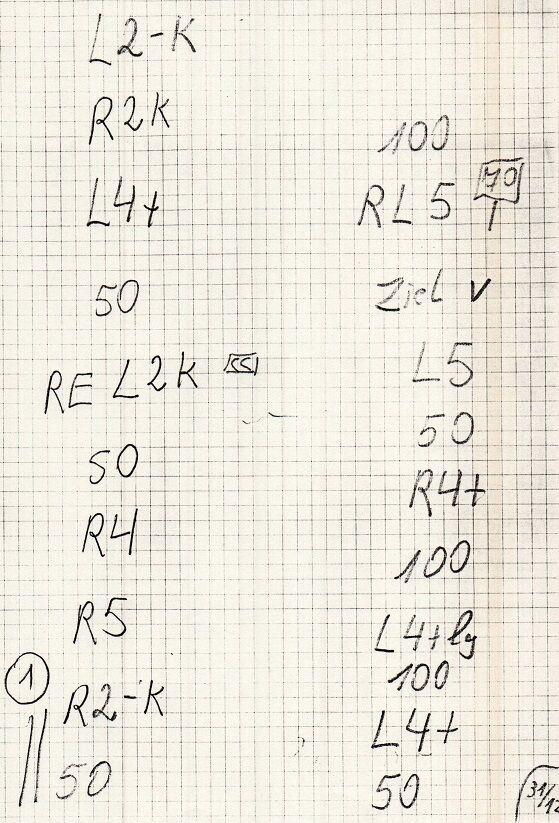 L2-K
R2K
L4+
50
RE L2K
50
R4
R5
1
R2-K
50
100
RL5 70
Ziel
L5
50
R4+
100
L4+lg
100
L4+
50
31/12